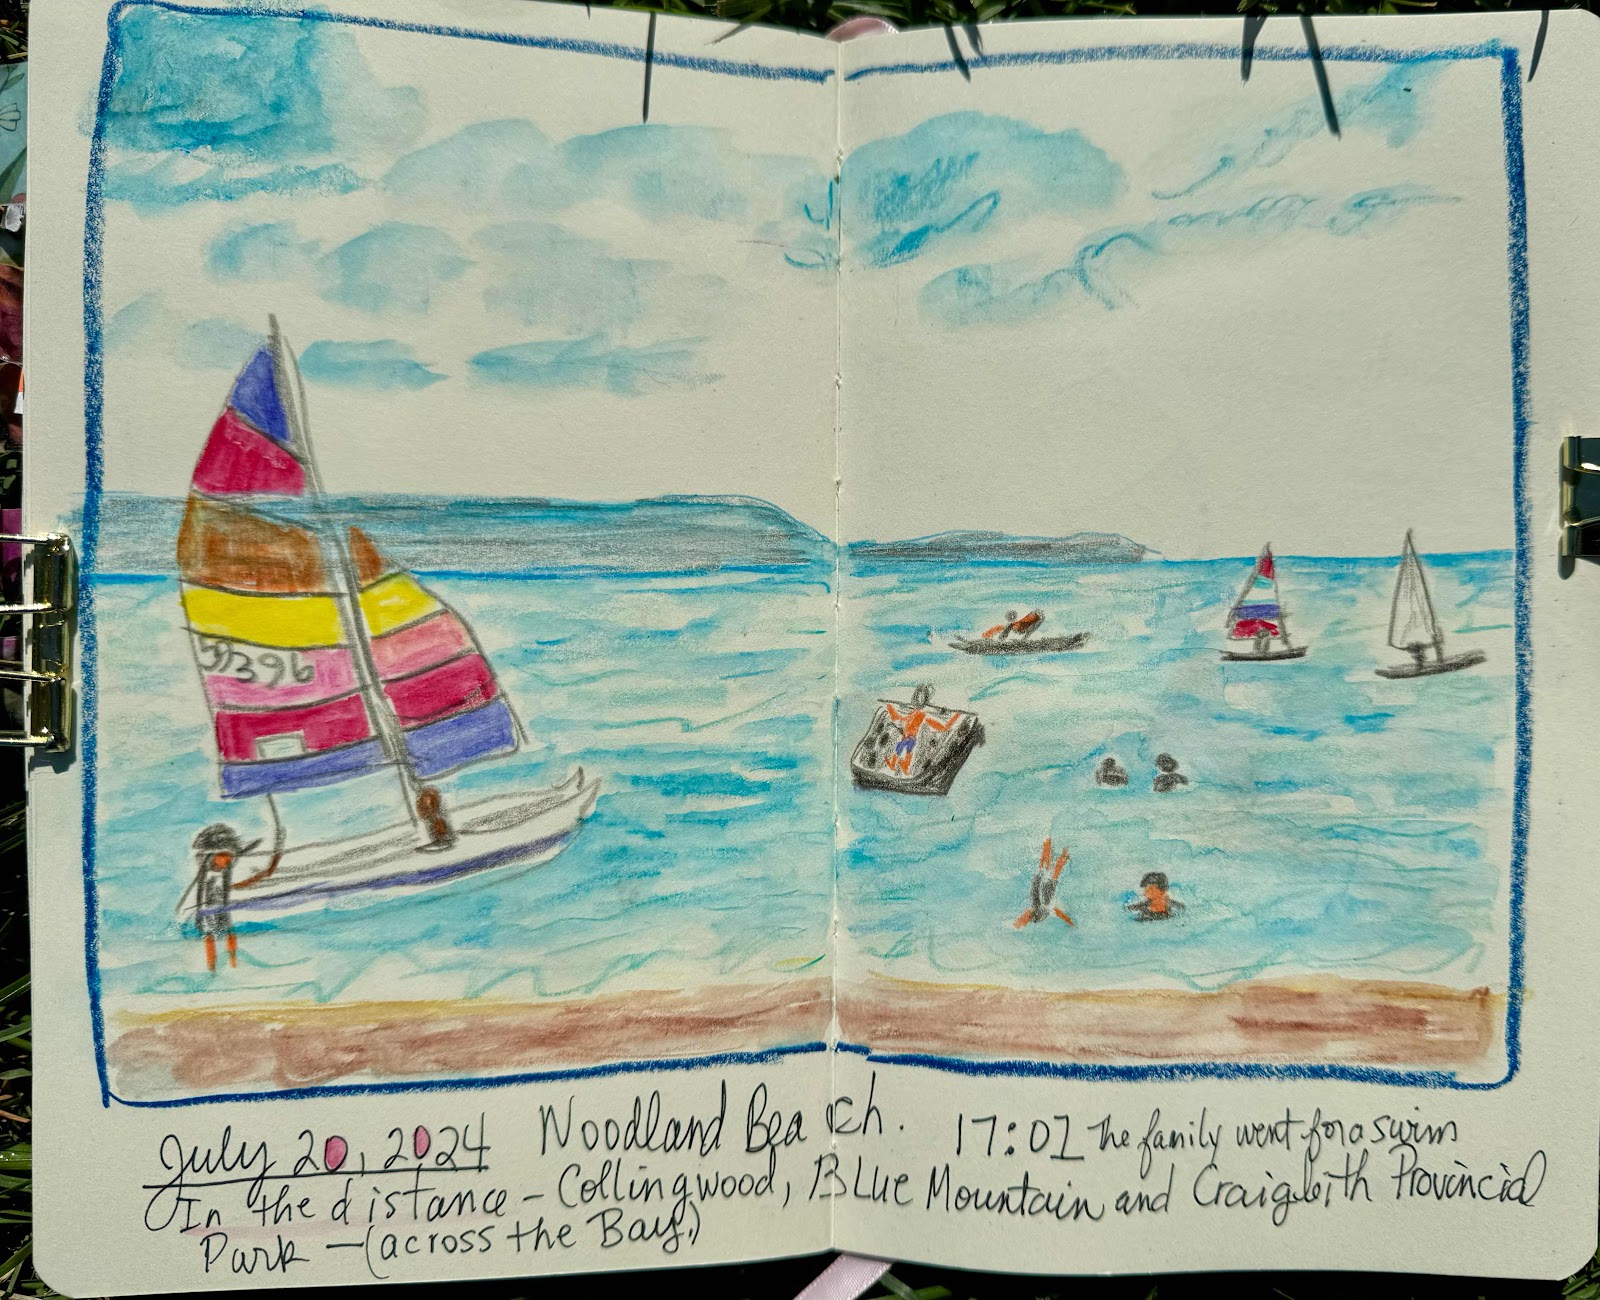 396
July 20, 2024 Woodland Beach. 17:01 The family went for a swim
In the distance – Collingwood, BLue Mountain and Craigleith Provincial
Park – (across the Bay.)